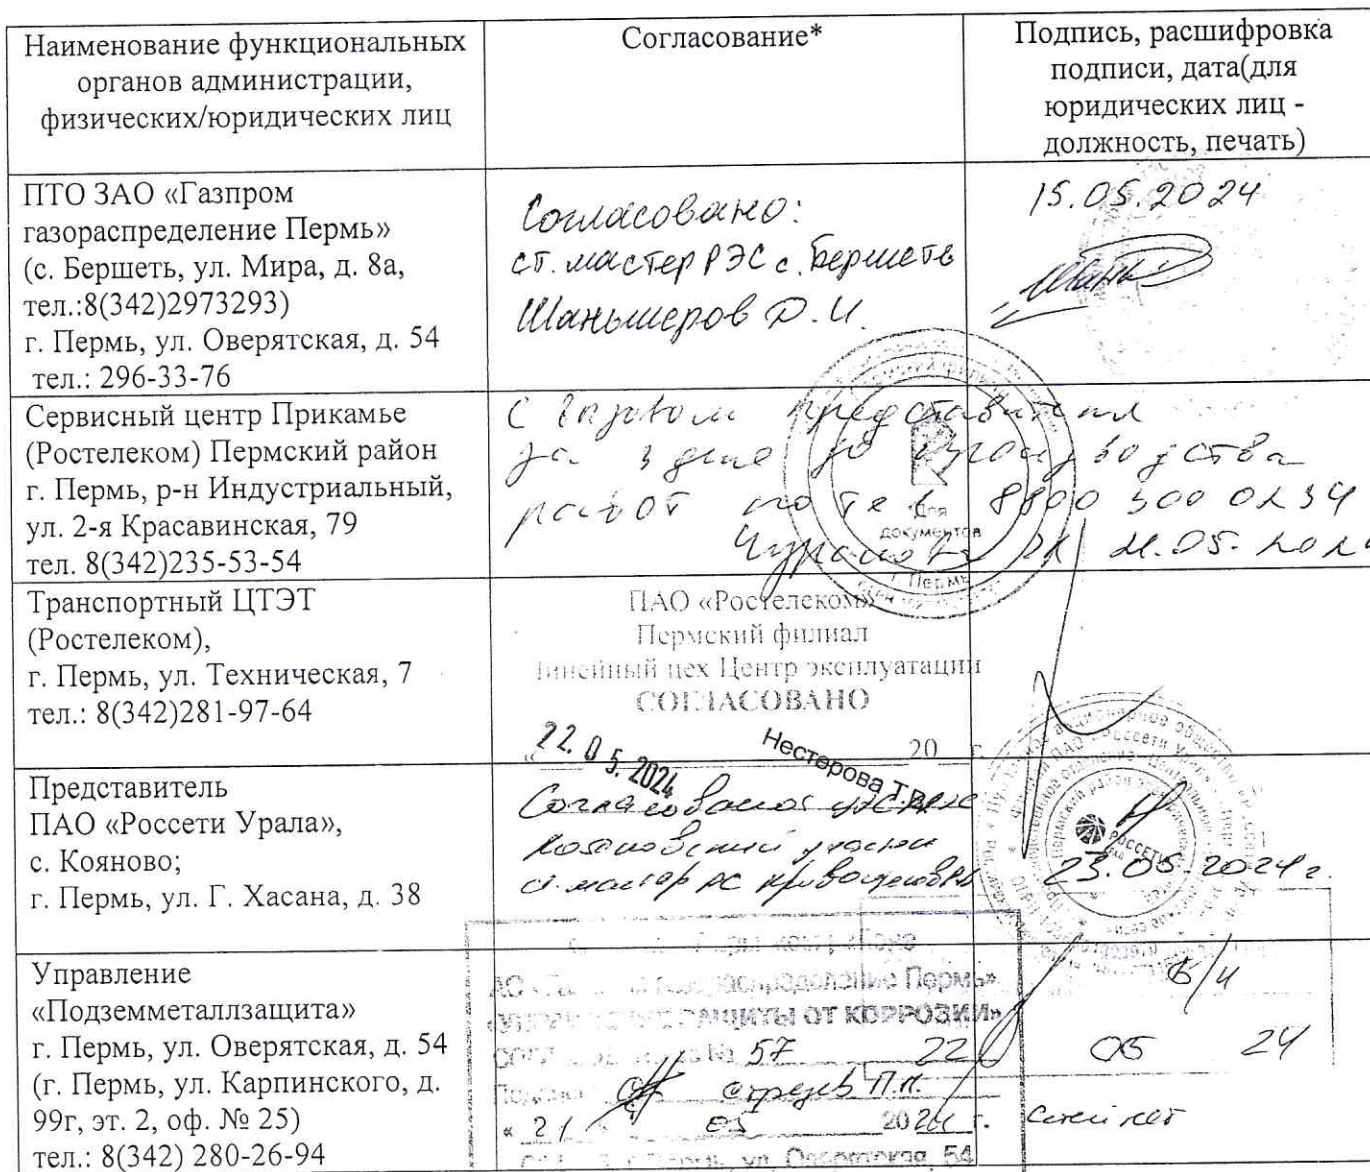 Наименование функциональных
органов администрации,
физических/юридических лиц
Согласование*
Подпись, расшифровка
подписи, дата(для
юридических лиц -
должность, печать)
ПТО ЗАО «Газпром
газораспределение Пермь»
(с. Бершеть, ул. Мира, д. 8а,
тел.:8(342)2973293)
г. Пермь, ул. Оверятская, д. 54
тел.: 296-33-76
Согласовано:
ст. мастер РЭС с. Бершеть
Шаньшеров Д.И.
15.05.2024
Сервисный центр Прикамье
(Ростелеком) Пермский район
г. Пермь, р-н Индустриальный,
ул. 2-я Красавинская, 79
тел. 8(342)235-53-54
С представителя
за 3 дня до производства
работ по тел 8800 300 0234
21.05.2024
Для
документов
г. Пермь
Транспортный ЦТЭТ
(Ростелеком),
г. Пермь, ул. Техническая, 7
тел.: 8(342)281-97-64
ПАО «Ростелеком»
Пермский филиал
Линейный цех Центр эксплуатации
СОГЛАСОВАНО
22.05.2024
20 г.
Нестерова Т.В.
Представитель
ПАО «Россети Урала»,
с. Кояново;
г. Пермь, ул. Г. Хасана, д. 38
Согласовано
ст. мастер
РОССЕТИ
23.05.2024 г.
Управление
«Подземметаллзащита»
г. Пермь, ул. Оверятская, д. 54
(г. Пермь, ул. Карпинского, д.
99г, эт. 2, оф. № 25)
тел.: 8(342) 280-26-94
газораспределение Пермь»
ЗАЩИТЫ ОТ КОРРОЗИИ»
№ 57
22 05 24
П.Н.
« 21 05 2024 г.
Сетей нет
Б/н
ул. Оверятская, 54